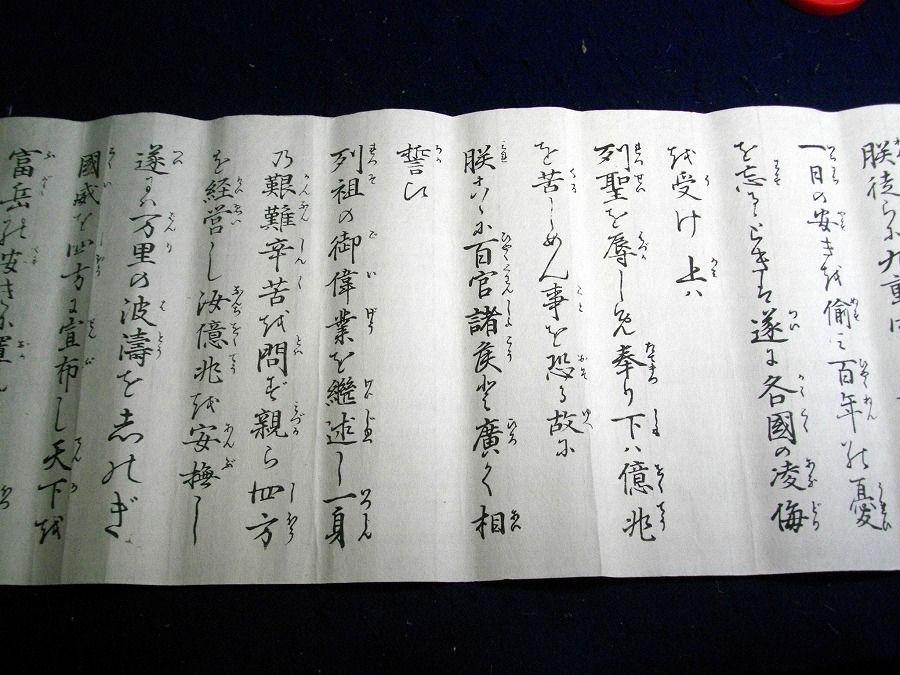 朕徒らに九重
一日の安きを偸み百年の憂
を忘るゝときは遂に各國の凌侮
を受け上ハ
列聖を辱しめ奉り下ハ億兆
を苦しめん事を恐る故に
朕こゝに百官諸侯と廣く相
誓ひ
列祖の御偉業を繼述し一身
乃艱難辛苦を問ず親ら四方
を経営し汝億兆を安撫し
遂には万里の波濤を志のぎ
國威を四方に宣布し天下を
富岳の安きに置ん